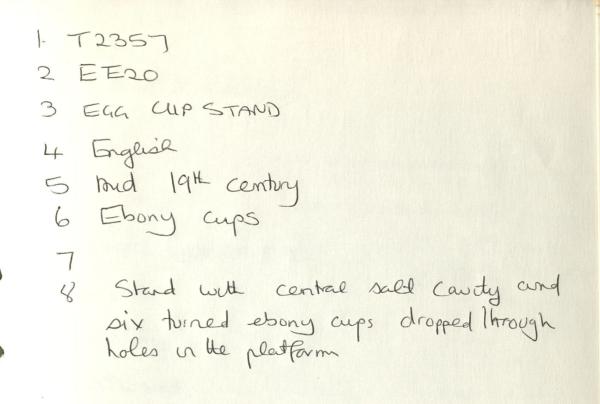 1. T2357
2 EE20
3 EGG CUP STAND
4 English
5 Mid 19th century
6 Ebony cups
7
8 Stand with central salt cavity and
six turned ebony cups dropped through
holes in the platform